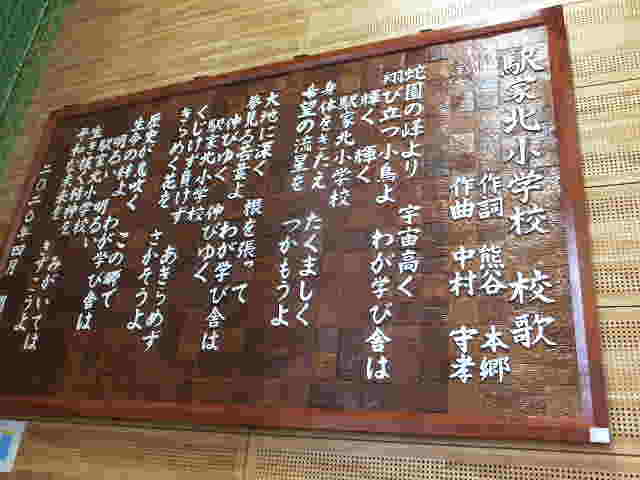 駅家北小学校 校歌
作詞 熊谷 本郷
作曲 中村 守孝
蛇園の峰より 宇宙高く
翔び立つ小鳥よ わが学び舎は
輝く 輝く
駅家北小学校
身体をきたえ たくましく
希望の流星を つかもうよ
大地に深く 根を張って
夢見る若葉よ わが学び舎は
伸びゆく 伸びゆく
駅家北小学校
くじけず負けず あきらめず
きらめく花を さかそうよ
息吹く この郷で
生命の絆よ わが学び舎は
明るい 明るい
駅家北小学校
生き抜く精神を みがいては
平和な未来を きずこうよ
二〇二〇年四月